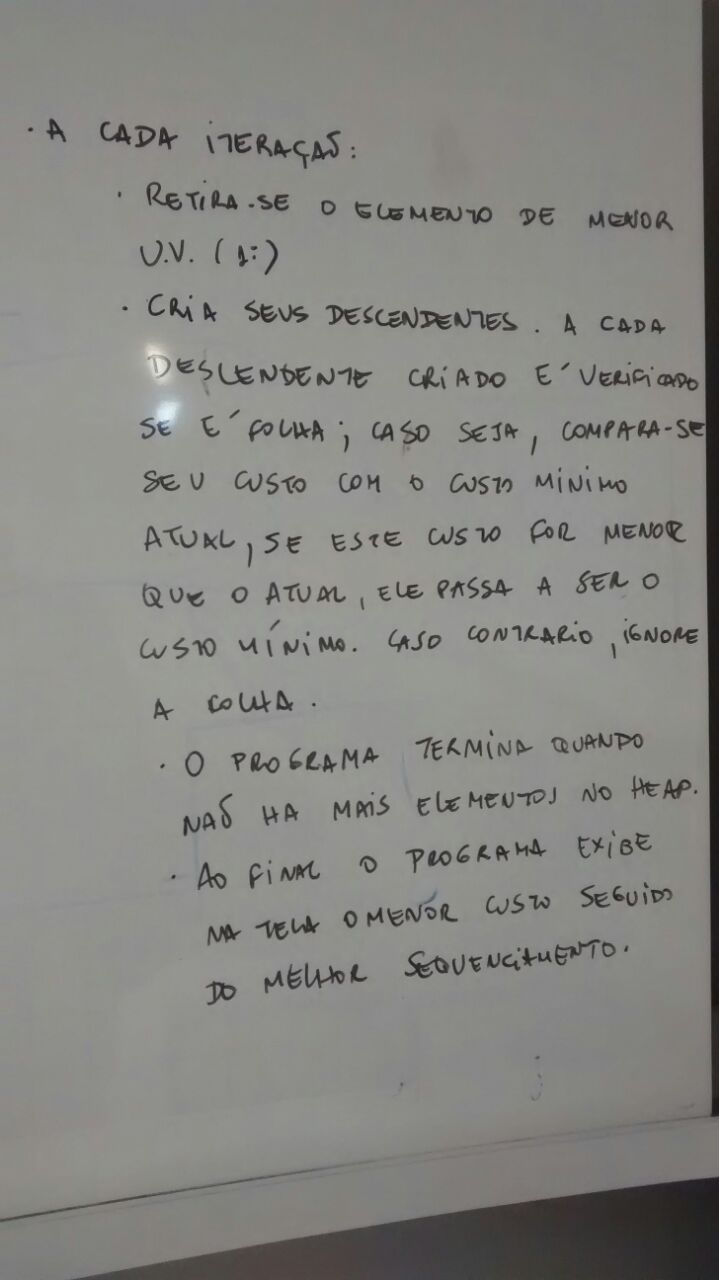 · A CADA ITERAÇÃO:
· RETIRA-SE O ELEMENTO DE MENOR
U.V. (1º)
· CRIA SEUS DESCENDENTES. A CADA
DESCENDENTE CRIADO É VERIFICADO
SE É FOLHA; CASO SEJA, COMPARA-SE
SEU CUSTO COM O CUSTO MINIMO
ATUAL, SE ESTE CUSTO FOR MENOR
QUE O ATUAL, ELE PASSA A SER O
CUSTO MÍNIMO. CASO CONTRARIO, IGNORE
A FOLHA.
· O PROGRAMA TERMINA QUANDO
NÃO HA MAIS ELEMENTOS NO HEAP.
· AO FINAL O PROGRAMA EXIBE
NA TELA O MENOR CUSTO SEGUIDO
DO MELHOR SEQUENCIAMENTO.